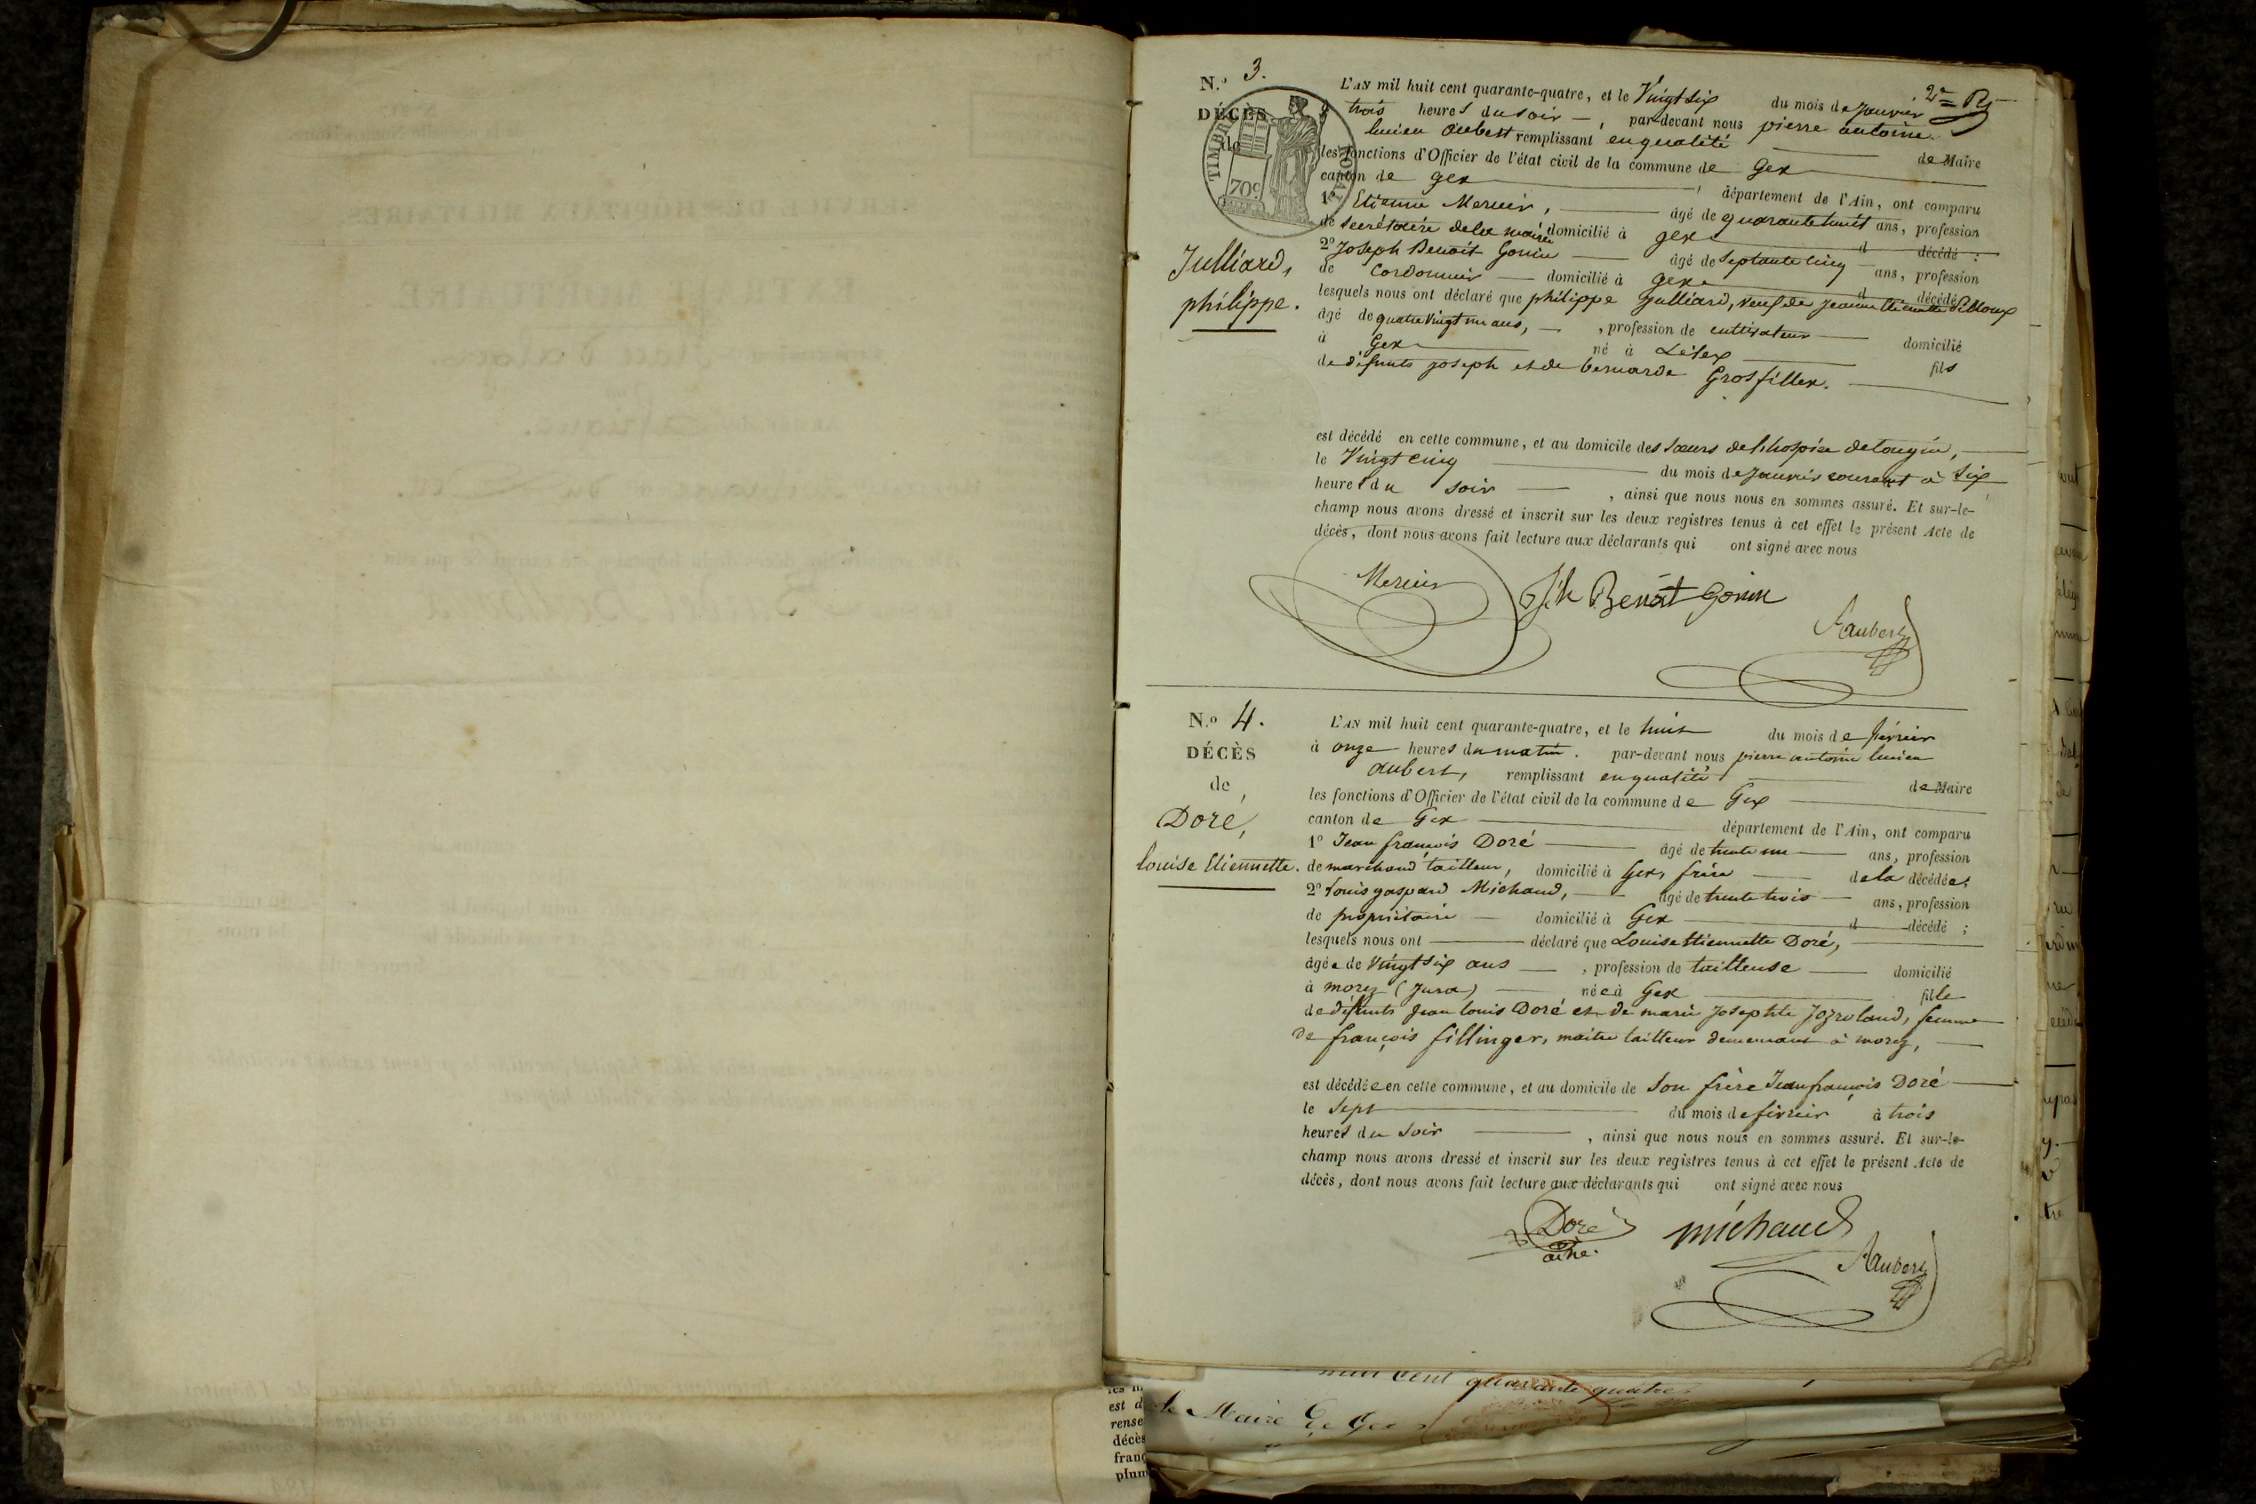 N.º 3.
2e
DÉCÈS
de
TIMBRE ROYAL
70c
Julliard,
philippe.
L'AN mil huit cent quarante-quatre, et le Vingt six du mois de Janvier
à trois heures du soir —, par-devant nous pierre antoine
lucien Aubert remplissant en qualité de Maire
les fonctions d'Officier de l'état civil de la commune de Gex
canton de gex, département de l'Ain, ont comparu
1º Etienne Mercier, âgé de quarante huit ans, profession
de secrétaire de la mairie domicilié à gex d décédé ;
2º Joseph Benoit Gonin âgé de septante cinq ans, profession
de Cordonnier domicilié à Gex d décédé
lesquels nous ont déclaré que philippe Julliard, veuf de Jeanne
âgé de quatre vingt un ans, —, profession de cultivateur domicilié
à Gex né à Lélex fils
de défunts joseph et de bernarde Grosfillex.
est décédé en cette commune, et au domicile des sœurs de l'hospice de tougin,
le Vingt cinq du mois de Janvier courant à six
heures du soir —, ainsi que nous nous en sommes assuré. Et sur-le-
champ nous avons dressé et inscrit sur les deux registres tenus à cet effet le présent Acte de
décès, dont nous avons fait lecture aux déclarants qui ont signé avec nous
Mercier Jh Benoit Gonin
Aubert
N.º 4.
DÉCÈS
de
Doré,
louise Etiennette.
L'AN mil huit cent quarante-quatre, et le huit du mois de février
à onze heures du matin. par-devant nous pierre antoine lucien
Aubert, remplissant en qualité de Maire
les fonctions d'Officier de l'état civil de la commune de Gex
canton de Gex département de l'Ain, ont comparu
1º Jean françois Doré âgé de trente un ans, profession
de marchand tailleur, domicilié à Gex, frère de la décédée;
2º Louis gaspard Michaud, âgé de trente trois ans, profession
de propriétaire domicilié à Gex d décédé ;
lesquels nous ont déclaré que Louise Etiennette Doré,
âgée de vingt six ans —, profession de tailleuse domicilié
à morez (Jura) née à Gex fille
de défunts Jean louis Doré et de marie Josephte Jozroland, femme
de françois fillinger, maitre tailleur demeurant à morez,
est décédée en cette commune, et au domicile de son frère Jean françois Doré
le sept du mois de février à trois
heures du soir —, ainsi que nous nous en sommes assuré. Et sur-le-
champ nous avons dressé et inscrit sur les deux registres tenus à cet effet le présent Acte de
décès, dont nous avons fait lecture aux déclarants qui ont signé avec nous
Doré
ainé.
michaud
Aubert
cent quarante quatre
le Maire de Gex
est d
rense
décès
franç
plum